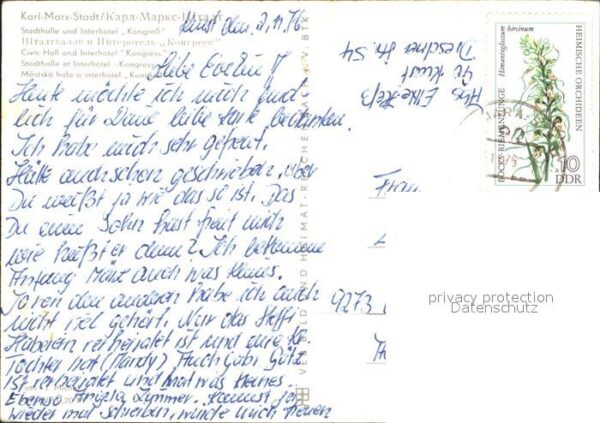 Karl-Marx-Stadt / Карл-Маркс-Штадт
Stadthalle und Interhotel „Kongreß"
Штадтхалле и Интеротель „Конгресс"
Civic Hall and Interhotel "Kongress"
Stadthalle et Interhotel «Kongress»
Městska hala a interhotel
Liebe Evelin!
Heute möchte ich mich
lich für Deine liebe Karte bedanken.
Ich habe mich sehr gefreut.
Hätte auch schon geschrieben, aber
Du weißt ja wie das so ist. Das
Du einen Sohn hast freut mich
wie heißt er denn? Ich bekomme
Anfang März auch was kleines.
Ja von den anderen habe ich auch
nicht viel gehört. Nur das Steffi
verheiratet ist und eine kl.
Tochter hat (Mandy). Auch Gabi Götz
ist verheiratet und hat was kleines.
Ebenso Angela Zimmer. Kannst ja
wieder mal schreiben, würde mich freuen
VEB BILD UND HEIMAT · REICHENBACH I. V.
Abs. Elke Heß
Dresdner Str. 54
9273
HEIMISCHE ORCHIDEEN
Himantoglossum hircinum
BOCKS-RIEMENZUNGE
10
DDR
privacy protection
Datenschutz